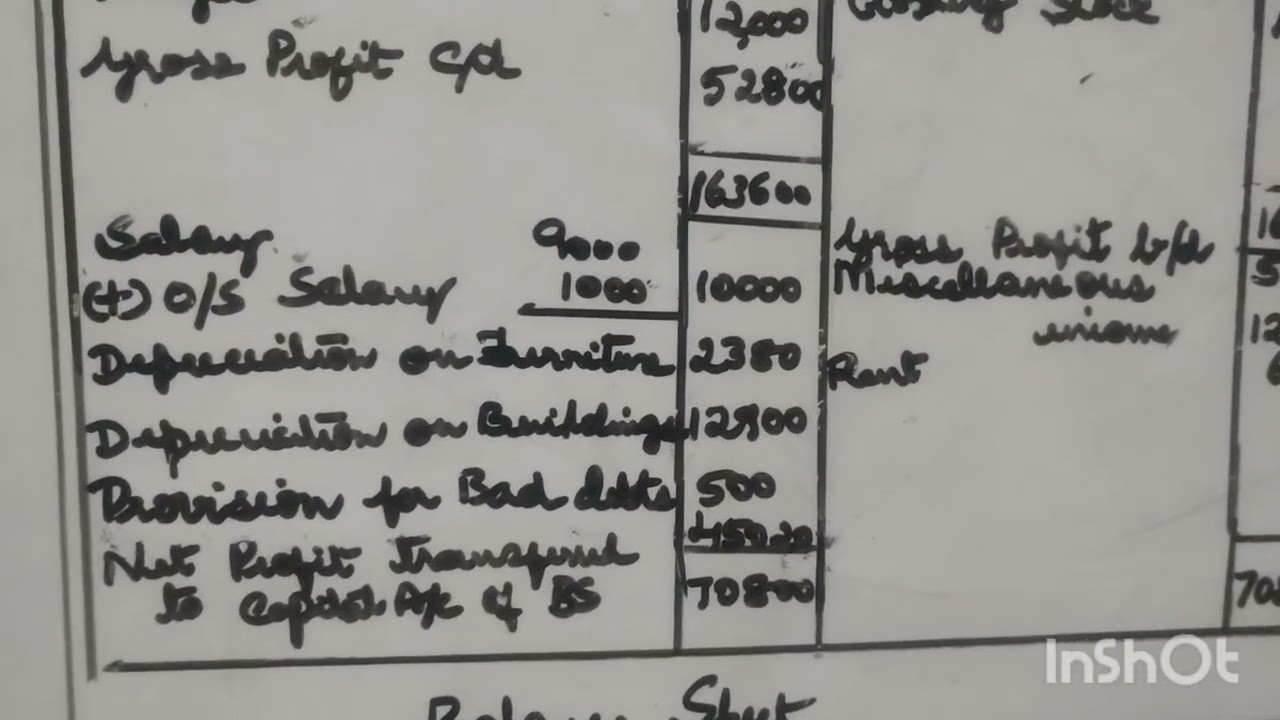 12,000 Closing Stock
Gross Profit c/d 52800
163600
Salary 9000 Gross Profit b/d
(+) O/S Salary 1000 10000 Miscellaneous
income 12
Depreciation on Furniture 2380 Rent
Depreciation on Buildings 12900
Provision for Bad debts 500
45020
Net Profit Transferred
to Capital A/c of BS 70800 70
Balance Sheet
InShOt